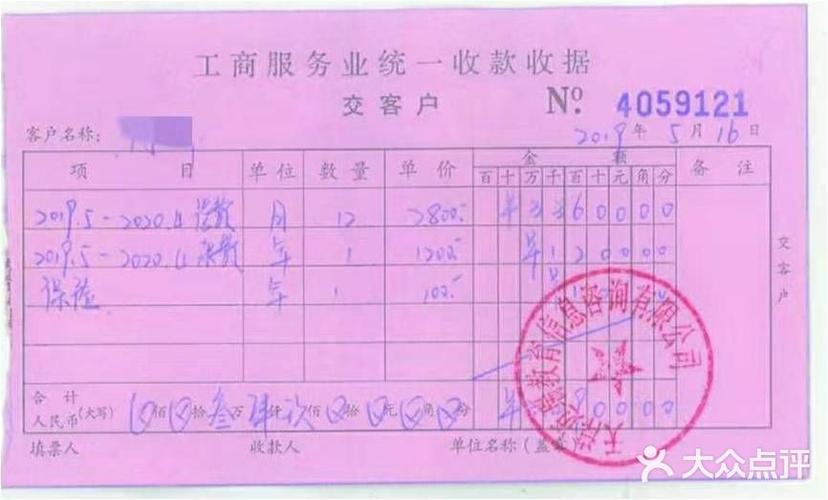 工商服务业统一收款收据
交客户 No 4059121
客户名称:
2019年5月16日
项目 单位 数量 单价 金额 备注
百十万千百十元角分
2019.5-2020.4 月 12 2800.- 60000
2019.5-2020.4 年 1 1200.- 120000
保险 年 1 100.-
合计
人民币(大写) 佰 拾叁万 仟 佰 拾 元 角 分 0000
填票人 收款人 单位名称(盖章)
交客户
教育信息咨询有限公司
大众点评